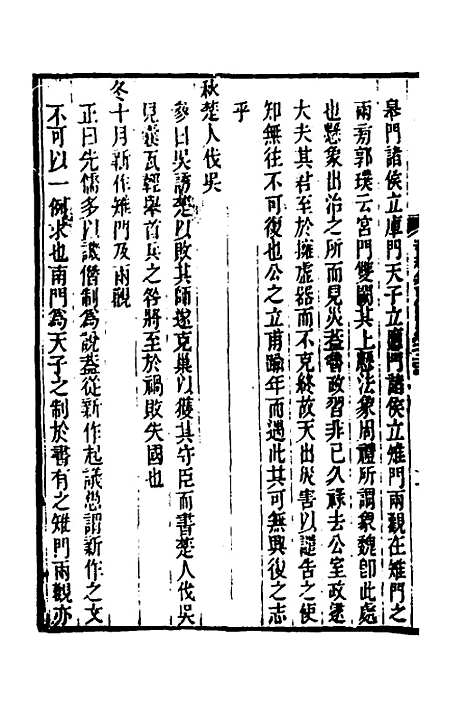 皋門諸侯立庫門天子立應門諸侯立雉門兩觀在雉門之
兩旁郭璞云宮門雙闕其上懸法象周禮所謂象魏卽此處
也懸象出治之所而見災蓋魯政習非已久祿去公室政逮
大夫其君至於擁虛器而不克終故天出災害以譴告之使
知無往不可復也公之立甫踰年而遇此其可無興復之志
乎
秋楚人伐吳
參曰吳誘楚以敗其師遂克巢以獲其守臣而書楚人伐吳
見囊瓦輕舉首兵之咎將至於禍敗失國也
冬十月新作雉門及兩觀
正曰先儒多以譏僭制為說蓋從新作起議愚謂新作之文
不可以一例求也南門為天子之制於書有之雉門兩觀亦